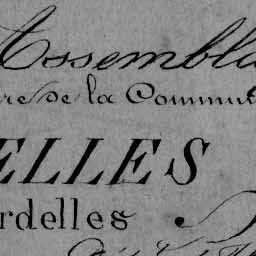 Assembla
re de la Commun
ELLES
rdelles